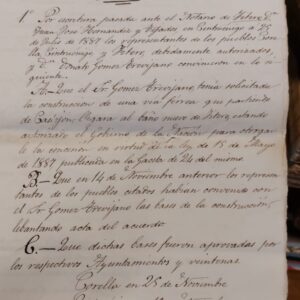 1º Por escritura pasada ante el Notario de Fitero Dn
Juan José Hernandez y Yepados en Cintruenigo á 25
de Julio de 1887 los representantes de los pueblos Core-
lla Cintruenigo y Fitero, debidamente autorizados,
y Dn Donato Gomez Trevijano convinieron en lo si-
guiente.
A.- Que el Sr Gomez Trevijano, tenia solicitada
la construccion de una via ferrea que partiendo
de Castejon llegara al baño nuevo de Fitero, estando
autorizado el Gobierno de la Nacion para otorgar-
le la concesion en virtud de la ley de 13 de Mayo
de 1887 publicada en la Gaceta de 24 del mismo
B.- Que en 14 de Noviembre anterior los represen-
tantes de los pueblos citados habian convenido con
el Sr Gomez Trevijano las bases de la construccion,
lebantando acta del acuerdo
C.- Que dichas bases fueron aprovadas por
los respectivos Ayuntamientos y veintenas
Corella en 25 de Noviembre